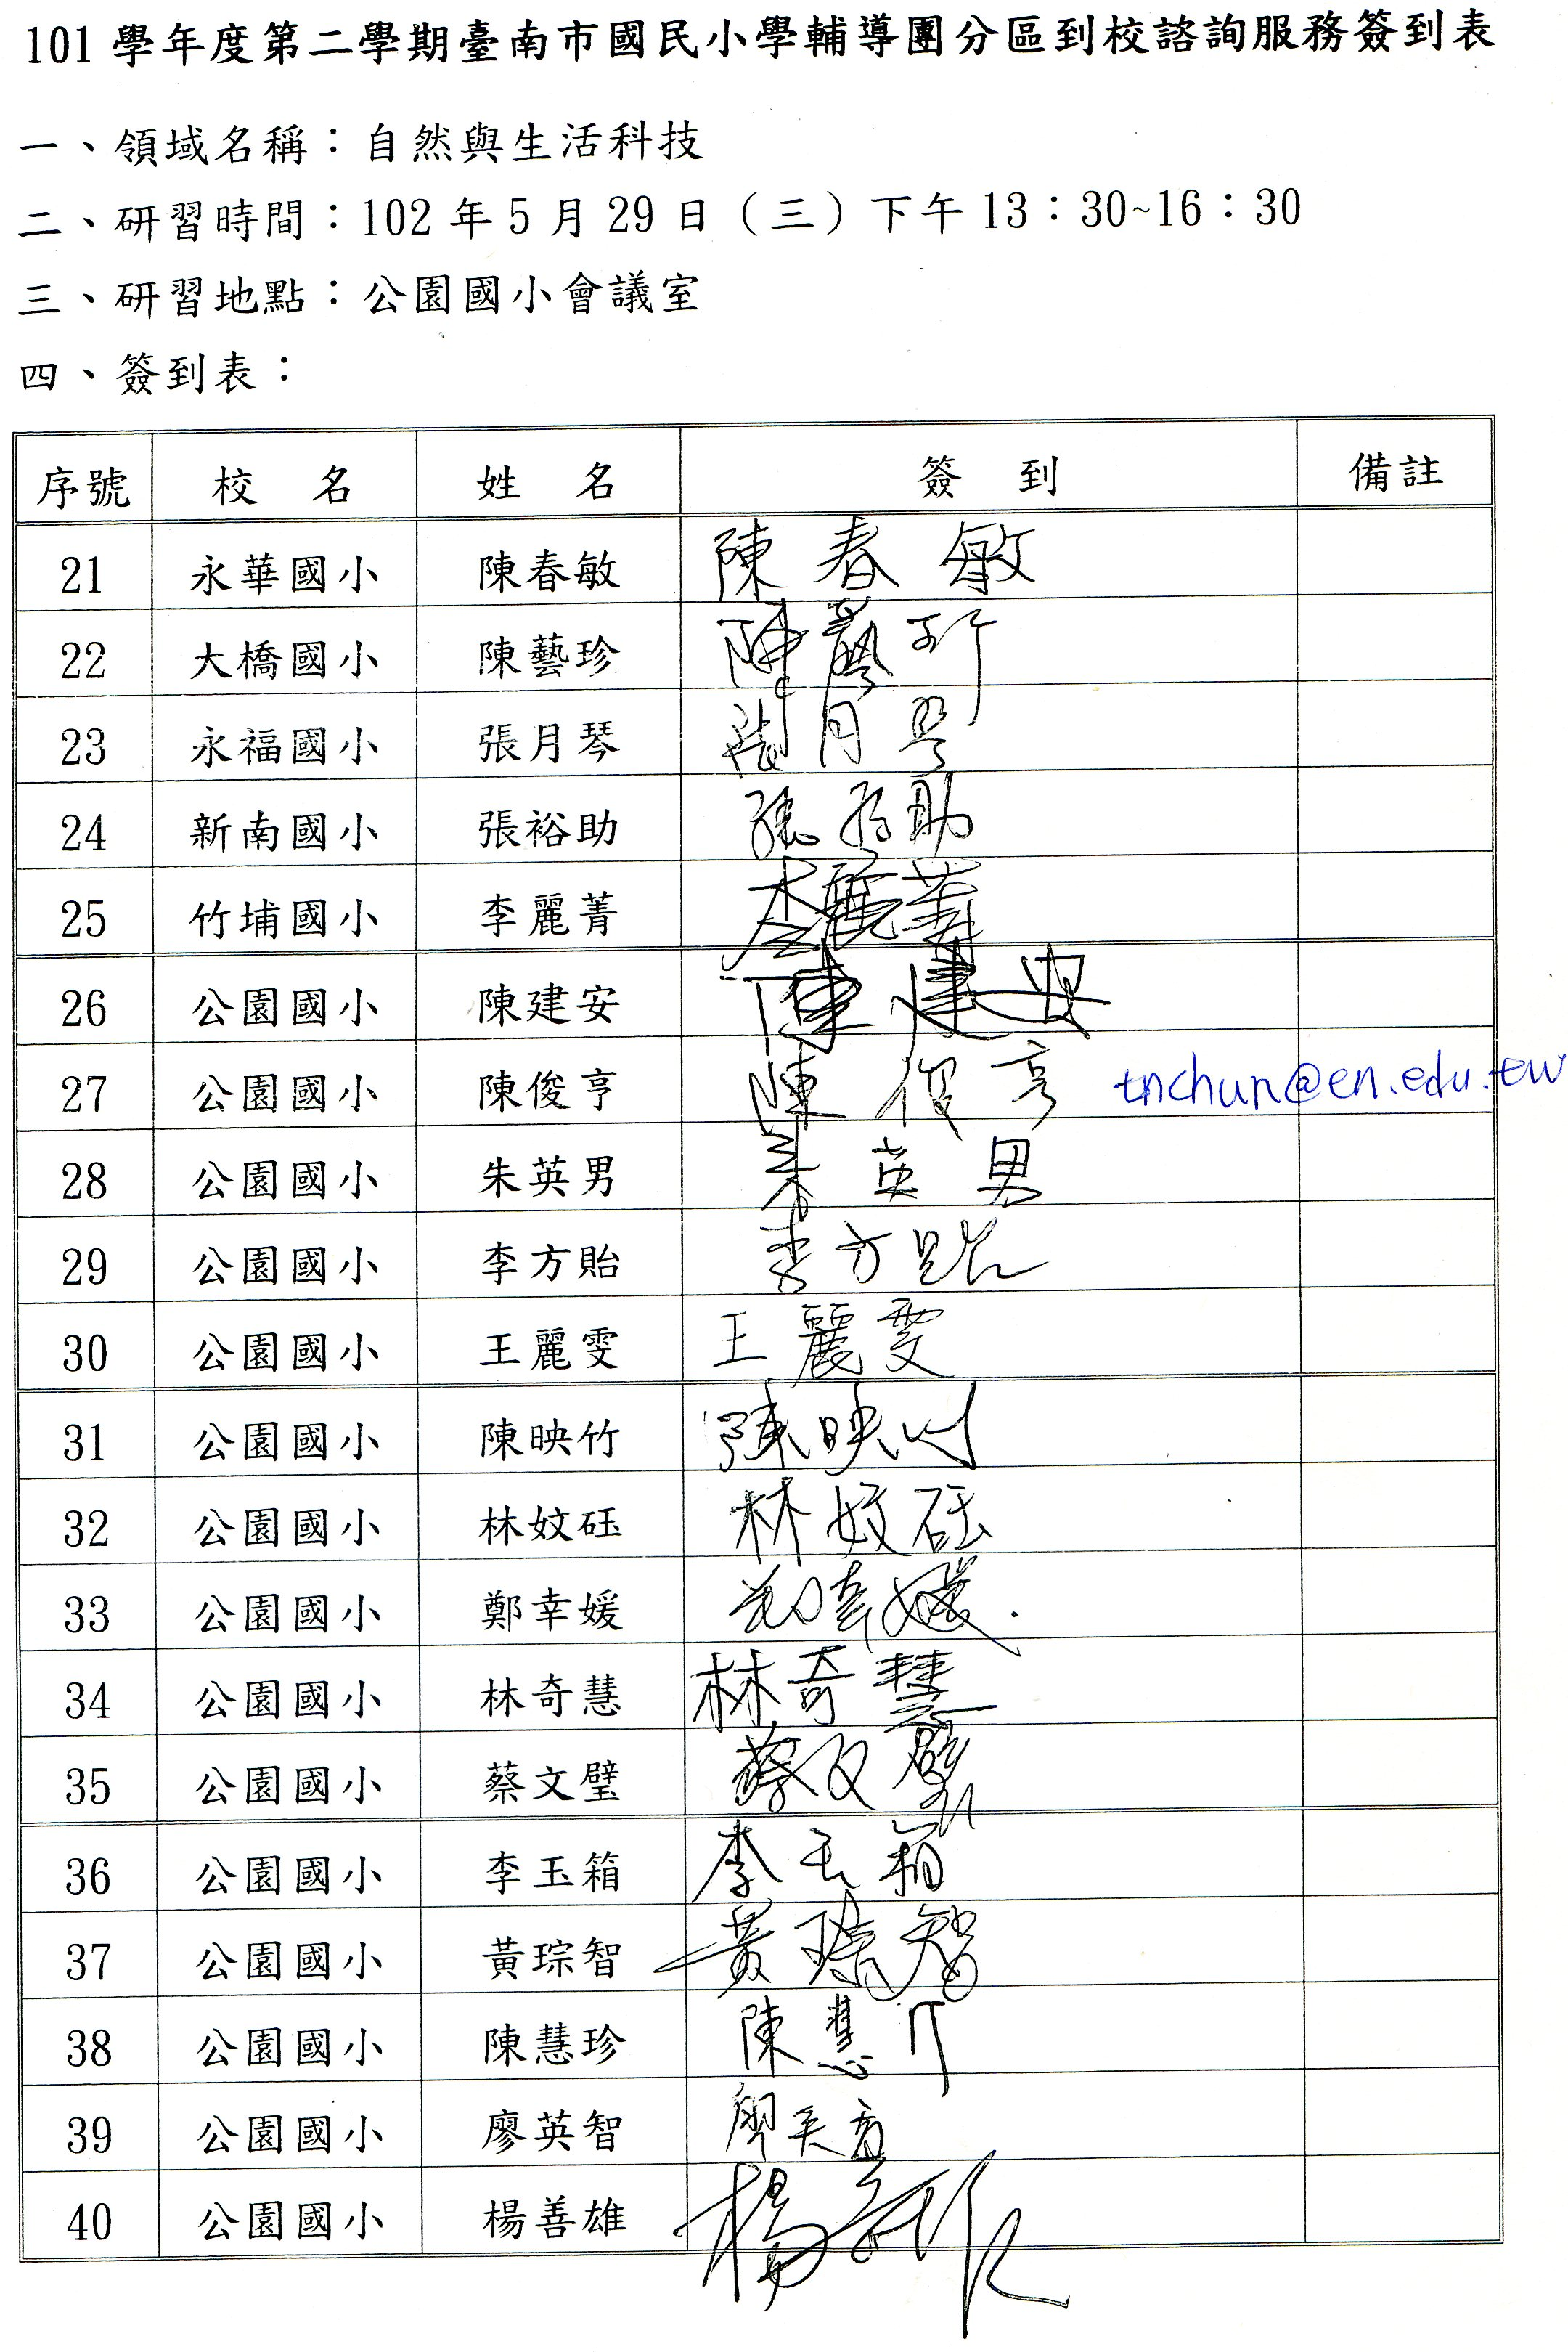 101學年度第二學期臺南市國民小學輔導團分區到校諮詢服務簽到表
一、領域名稱：自然與生活科技
二、研習時間：102年5月29日（三）下午13：30~16：30
三、研習地點：公園國小會議室
四、簽到表：
序號 校 名 姓 名 簽 到 備註
21 永華國小 陳春敏 陳春敏
22 大橋國小 陳藝珍 陳藝珍
23 永福國小 張月琴 張月琴
24 新南國小 張裕助 張裕助
25 竹埔國小 李麗菁 李麗菁
26 公園國小 陳建安 陳建安
27 公園國小 陳俊亨 陳俊亨 tnchun@en.edu.tw
28 公園國小 朱英男 朱英男
29 公園國小 李方貽 李方貽
30 公園國小 王麗雯 王麗雯
31 公園國小 陳映竹 陳映竹
32 公園國小 林妏砡 林妏砡
33 公園國小 鄭幸媛 鄭幸媛
34 公園國小 林奇慧 林奇慧
35 公園國小 蔡文璧 蔡文璧
36 公園國小 李玉箱 李玉箱
37 公園國小 黃琮智 黃琮智
38 公園國小 陳慧珍 陳慧
39 公園國小 廖英智 廖英智
40 公園國小 楊善雄 楊